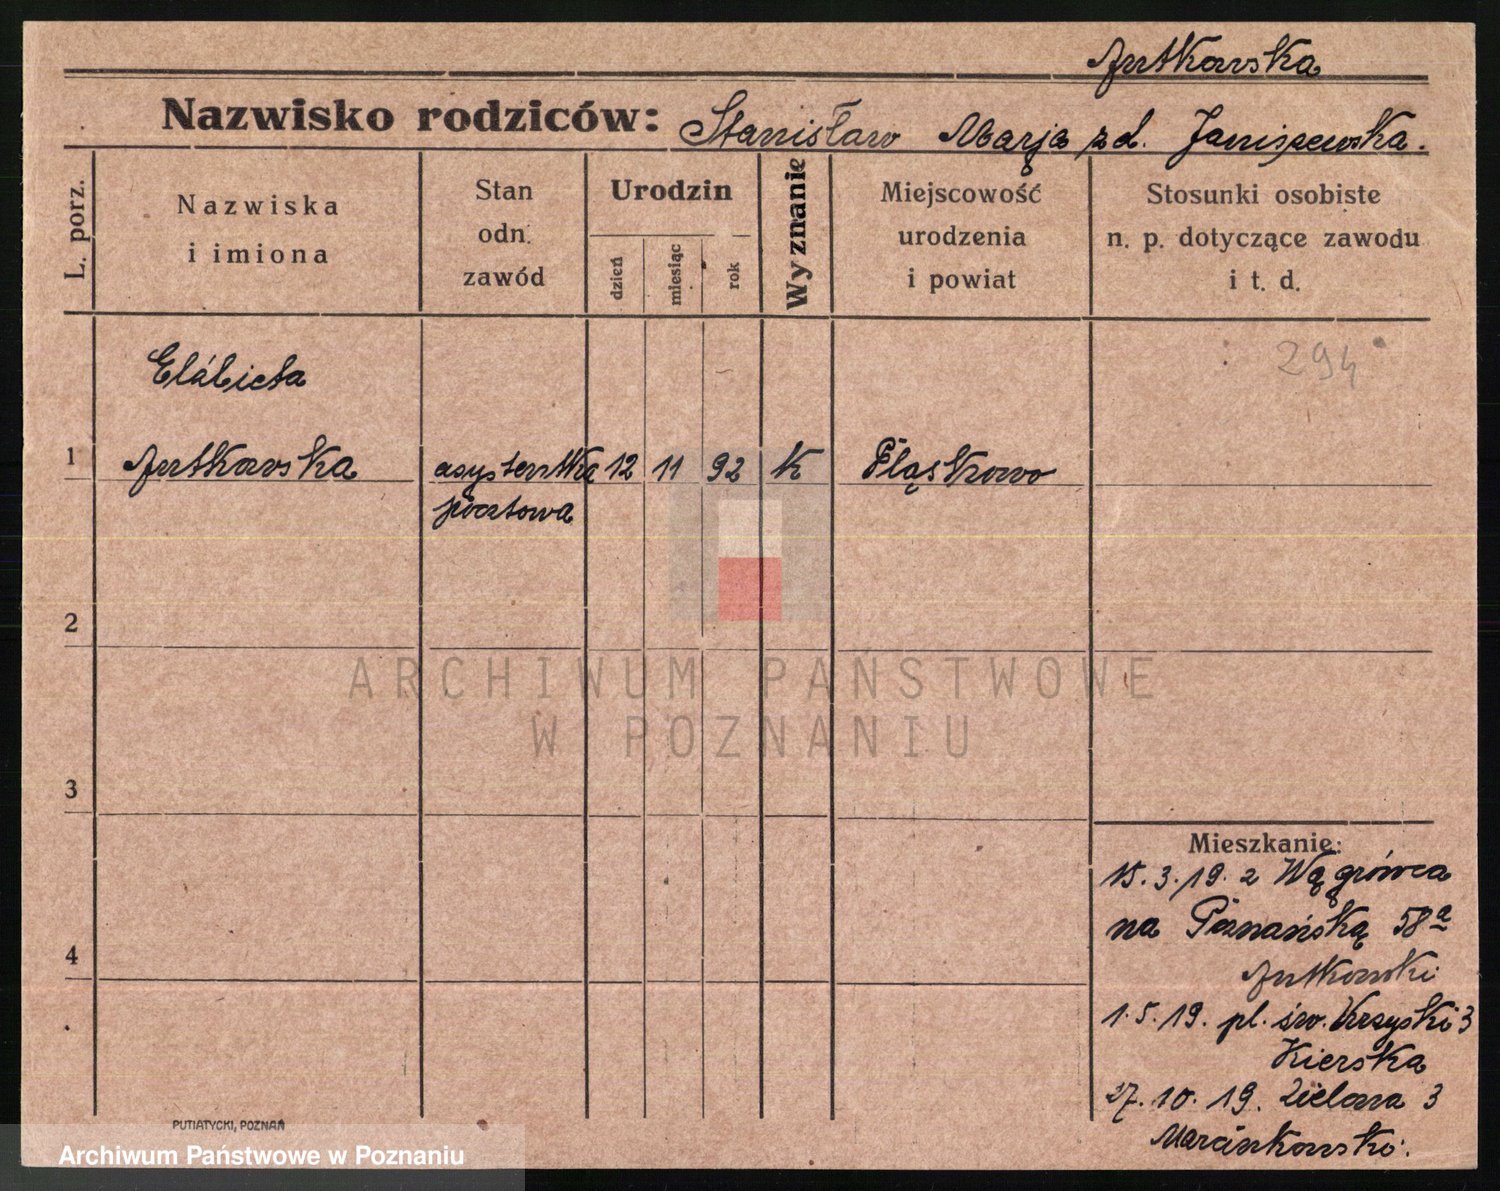 Jutkowska
Nazwisko rodziców: Stanisław Marja z d. Janiszewska.
L. porz.
Nazwiska
i imiona
Stan
odn.
zawód
Urodzin
dzień
miesiąc
rok
Wyznanie
Miejscowość
urodzenia
i powiat
Stosunki osobiste
n. p. dotyczące zawodu
i t. d.
294
Elżbieta
1 Jutkowska asystentka 12 11 92 K Pląskowo
pocztowa
2
ARCHIWUM PAŃSTWOWE
W POZNANIU
3
Mieszkanie:
15.3.19. z Wągrówca
na Poznańską 58a
4
Jutkowski
1.5.19. pl. św. Krzyski 3
Kierska
27.10.19. Zielona 3
Marcinkowski.
PUTIATYCKI, POZNAŃ
Archiwum Państwowe w Poznaniu